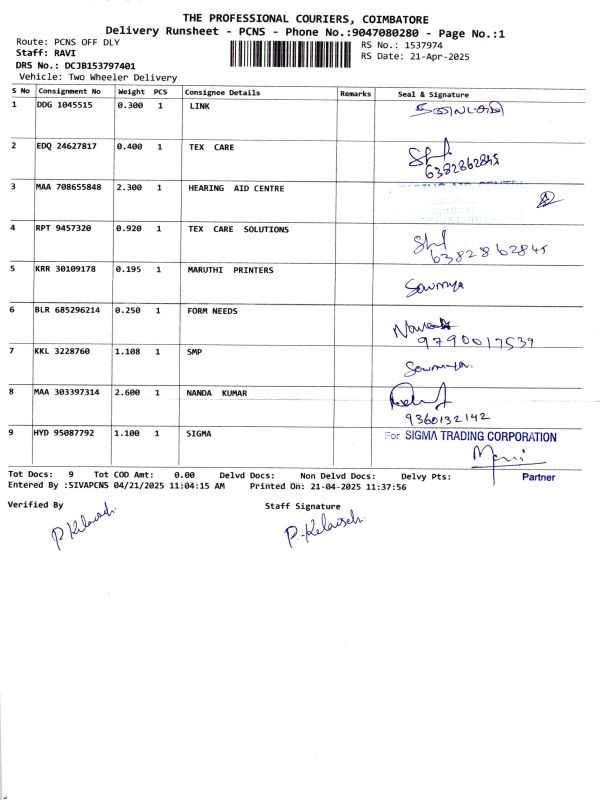 THE PROFESSIONAL COURIERS, COIMBATORE
Delivery Runsheet - PCNS - Phone No.:9047080280 - Page No.:1
Route: PCNS OFF DLY RS No.: 1537974
Staff: RAVI RS Date: 21-Apr-2025
DRS No.: DCJB153797401
Vehicle: Two Wheeler Delivery
S No Consignment No Weight PCS Consignee Details Remarks Seal & Signature
1 DDG 1045515 0.300 1 LINK
2 EDQ 24627817 0.400 1 TEX CARE
6382862845
3 MAA 708655848 2.300 1 HEARING AID CENTRE
4 RPT 9457320 0.920 1 TEX CARE SOLUTIONS
6382862845
5 KRR 30109178 0.195 1 MARUTHI PRINTERS
Sowmya
6 BLR 685296214 0.250 1 FORM NEEDS
9790017539
7 KKL 3228760 1.108 1 SMP
Sowmya
8 MAA 303397314 2.600 1 NANDA KUMAR
9360132142
9 HYD 95087792 1.100 1 SIGMA For SIGMA TRADING CORPORATION
Partner
Tot Docs: 9 Tot COD Amt: 0.00 Delvd Docs: Non Delvd Docs: Delvy Pts:
Entered By :SIVAPCNS 04/21/2025 11:04:15 AM Printed On: 21-04-2025 11:37:56
Verified By Staff Signature